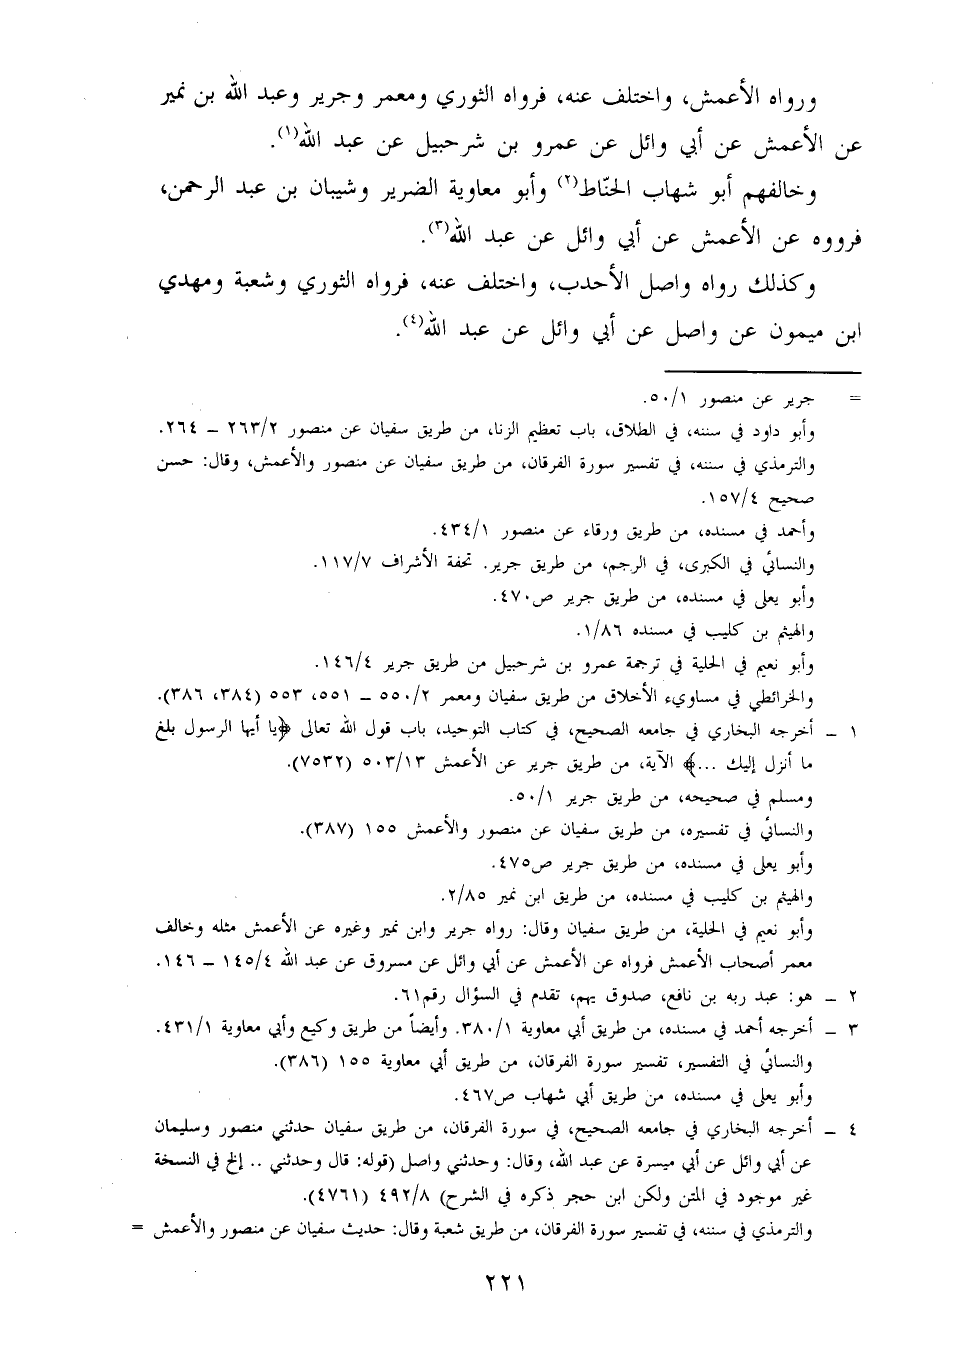 ورواه الأعمش، واختلف عنه، فرواه الثوري ومعمر وجرير وعبد الله بن نمير
عن الأعمش عن أبي وائل عن عمرو بن شرحبيل عن عبد الله(١).
وخالفهم أبو شهاب الحنّاط(٢) وأبو معاوية الضرير وشيبان بن عبد الرحمن،
فرووه عن الأعمش عن أبي وائل عن عبد الله(٣).
وكذلك رواه واصل الأحدب، واختلف عنه، فرواه الثوري وشعبة ومهدي
ابن ميمون عن واصل عن أبي وائل عن عبد الله(٤).
= جرير عن منصور ٥٠/١.
وأبو داود في سننه، في الطلاق، باب تعظيم الزنا، من طريق سفيان عن منصور ٢٦٣/٢ – ٢٦٤.
والترمذي في سننه، في تفسير سورة الفرقان، من طريق سفيان عن منصور والأعمش، وقال: حسن
صحيح ١٥٧/٤.
وأحمد في مسنده، من طريق ورقاء عن منصور ٤٣٤/١.
والنسائي في الكبرى، في الرجم، من طريق جرير. تحفة الأشراف ١١٧/٧.
وأبو يعلى في مسنده، من طريق جرير ص٤٧٠.
والهيثم بن كليب في مسنده ١/٨٦.
وأبو نعيم في الحلية في ترجمة عمرو بن شرحبيل من طريق جرير ١٤٦/٤.
والخرائطي في مساويء الأخلاق من طريق سفيان ومعمر ٥٥٠/٢ – ٥٥١، ٥٥٣ (٣٨٤، ٣٨٦).
١ – أخرجه البخاري في جامعه الصحيح، في كتاب التوحيد، باب قول الله تعالى ﴿يا أيها الرسول بلغ
ما أنزل إليك ...﴾ الآية، من طريق جرير عن الأعمش ٥٠٣/١٣ (٧٥٣٢).
ومسلم في صحيحه، من طريق جرير ٥٠/١.
والنسائي في تفسيره، من طريق سفيان عن منصور والأعمش ١٥٥ (٣٨٧).
وأبو يعلى في مسنده، من طريق جرير ص٤٧٥.
والهيثم بن كليب في مسنده، من طريق ابن نمير ٢/٨٥.
وأبو نعيم في الحلية، من طريق سفيان وقال: رواه جرير وابن نمير وغيره عن الأعمش مثله وخالف
معمر أصحاب الأعمش فرواه عن الأعمش عن أبي وائل عن مسروق عن عبد الله ١٤٥/٤ – ١٤٦.
٢ – هو: عبد ربه بن نافع، صدوق يهم، تقدم في السؤال رقم٦١.
٣ – أخرجه أحمد في مسنده، من طريق أبي معاوية ٣٨٠/١. وأيضاً من طريق وكيع وأبي معاوية ٤٣١/١.
والنسائي في التفسير، تفسير سورة الفرقان، من طريق أبي معاوية ١٥٥ (٣٨٦).
وأبو يعلى في مسنده، من طريق أبي شهاب ص٤٦٧.
٤ – أخرجه البخاري في جامعه الصحيح، في سورة الفرقان، من طريق سفيان حدثني منصور وسليمان
عن أبي وائل عن أبي ميسرة عن عبد الله، وقال: وحدثني واصل (قوله: قال وحدثني .. إلخ في النسخة
غير موجود في المتن ولكن ابن حجر ذكره في الشرح) ٤٩٢/٨ (٤٧٦١).
والترمذي في سننه، في تفسير سورة الفرقان، من طريق شعبة وقال: حديث سفيان عن منصور والأعمش =
٢٢١